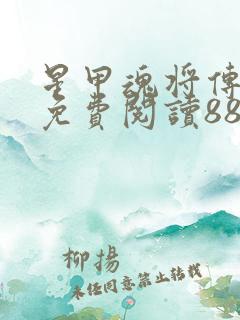 星甲魂将傳
免費閱讀88
柳揚
未经同意禁止转载